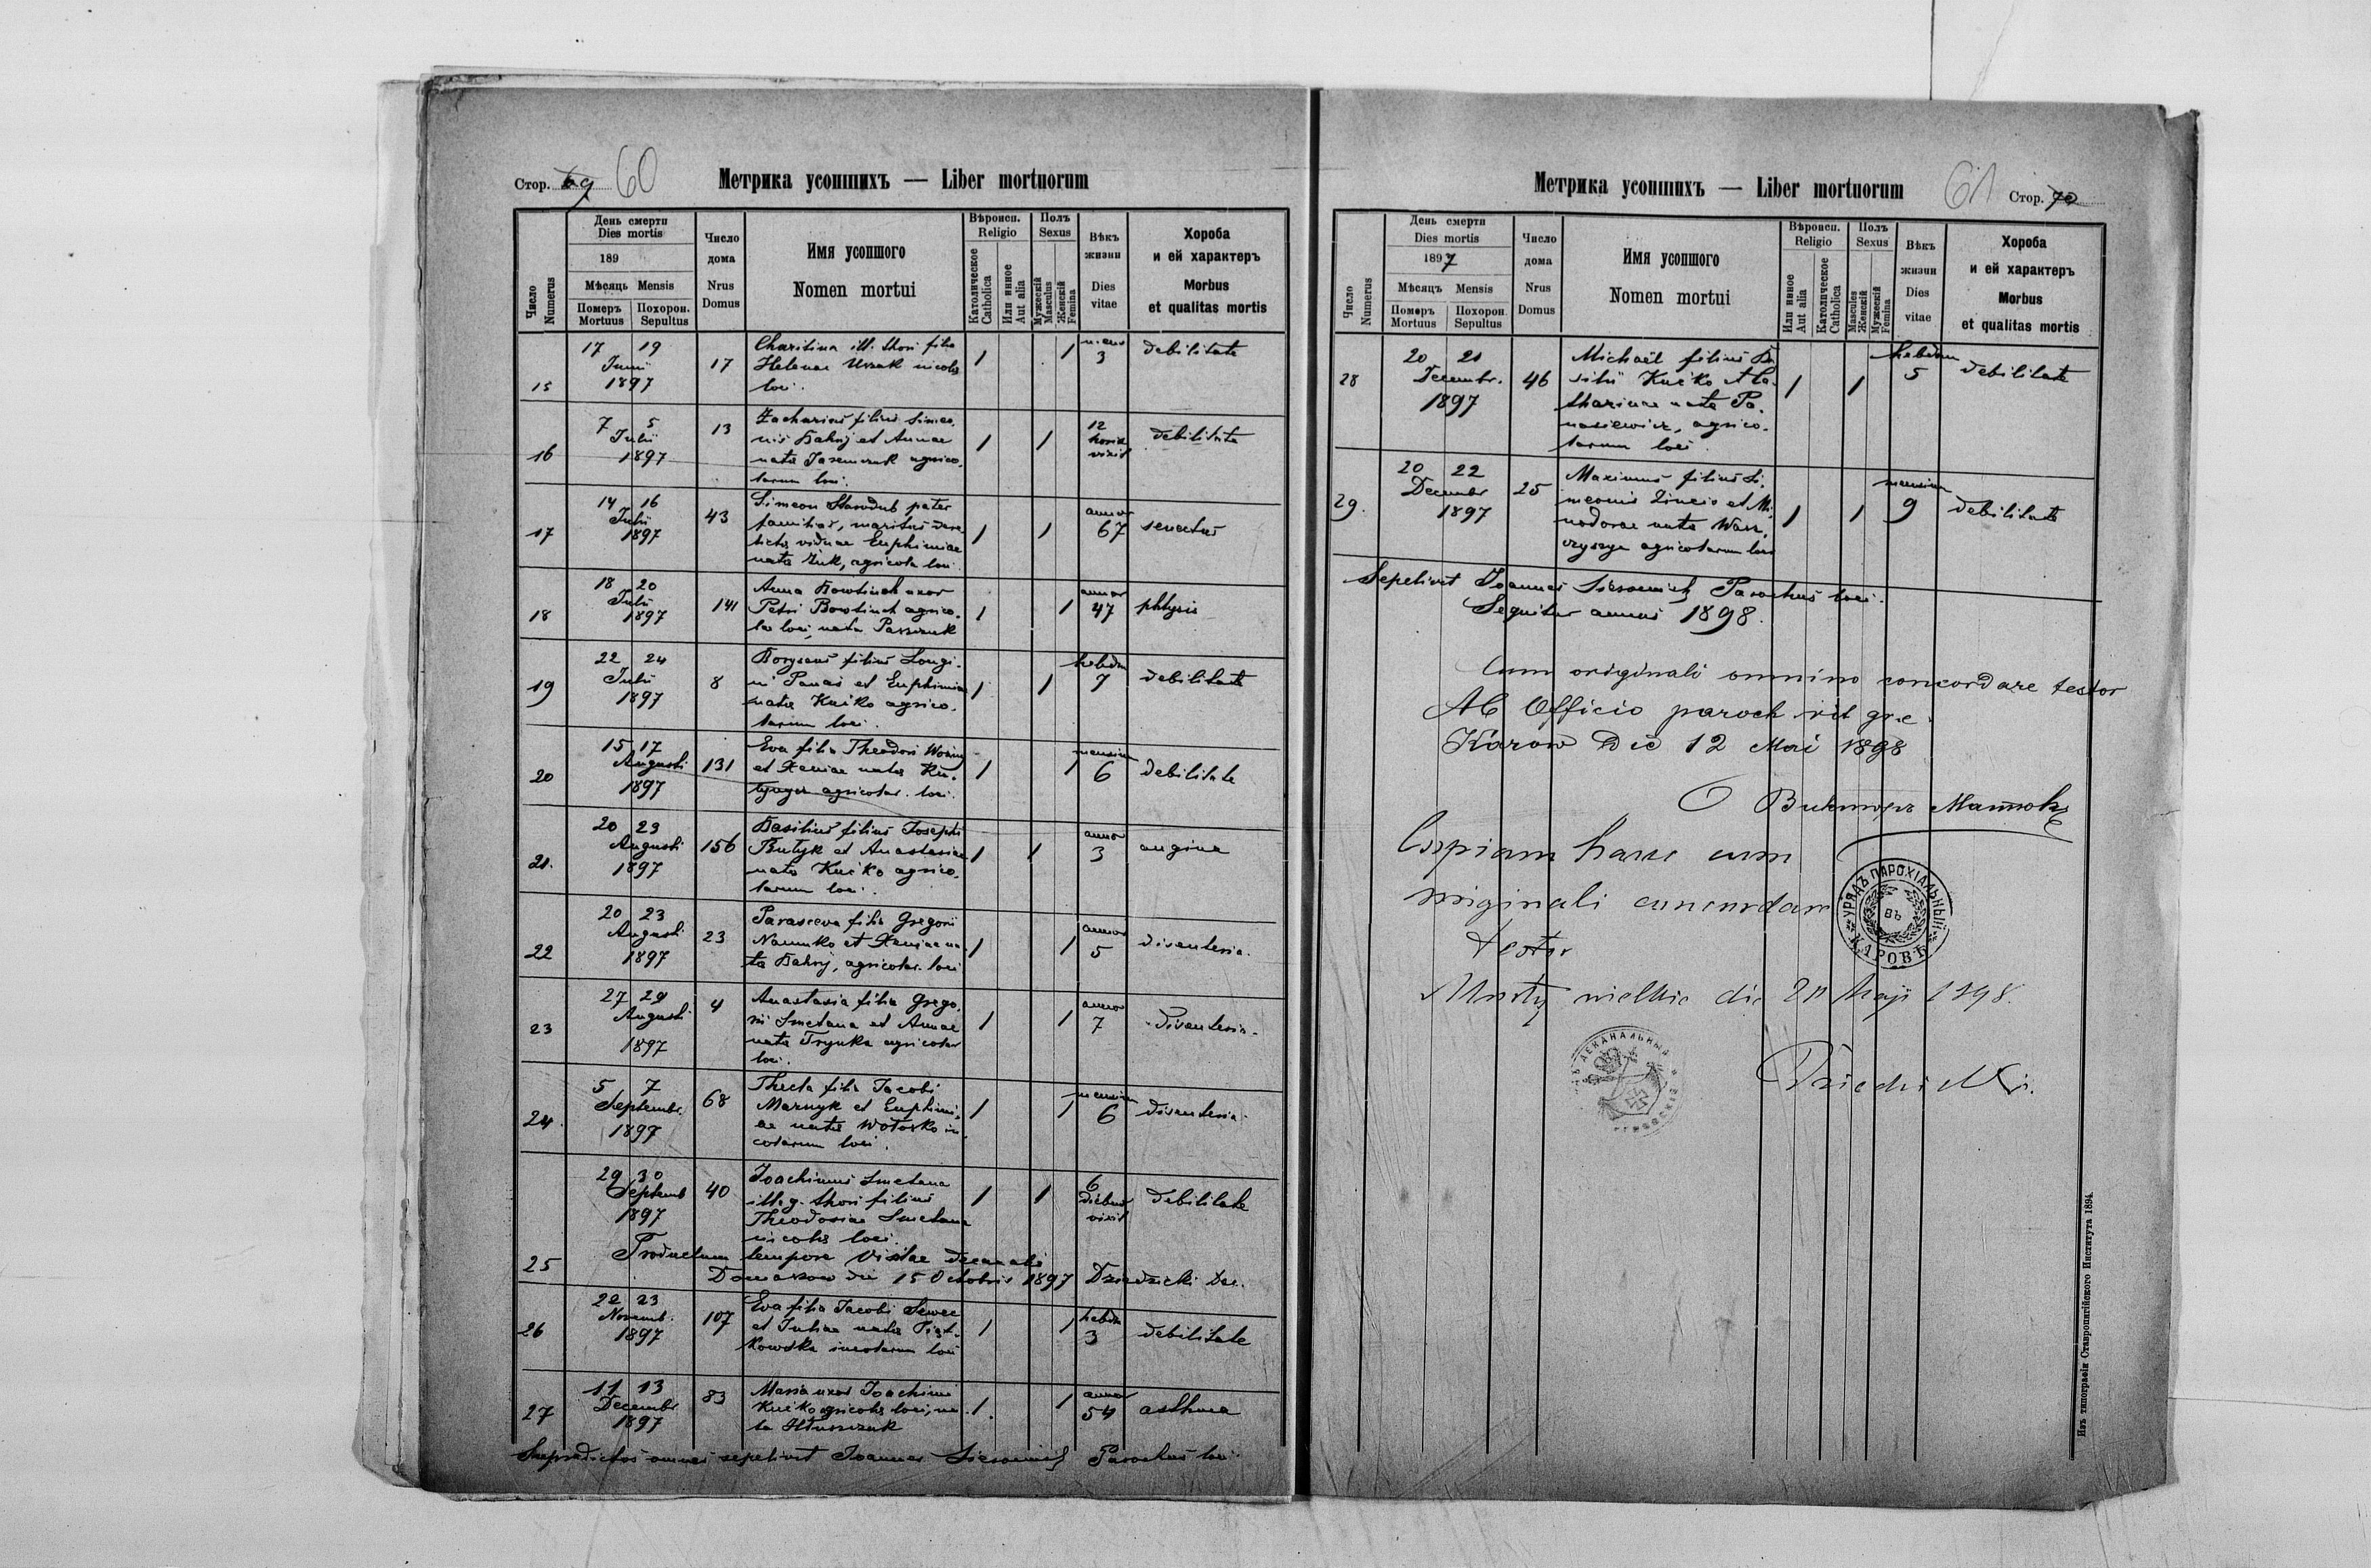 Стор. 69 60
Метрика усопшихъ — Liber mortuorum
Число
Numerus
День смерти
Dies mortis
189
Мѣсяць Mensis
Померъ
Mortuus
Похорон.
Sepultus
Число
дома
Nrus
Domus
Имя усопшого
Nomen mortui
Вѣроисп.
Religio
Католическое
Catholica
Или инное
Aut alia
Полъ
Sexus
Мужескій
Masculus
Женскій
Femina
Вѣкъ
жизни
Dies
vitae
Хороба
и ей характеръ
Morbus
et qualitas mortis
15
17 19
Junii
1897
17
Charitina ill. thori filia
Helenae Urzak incolae
loci.
1 1
3
debilitate
16
7 5
Julii
1897
13
Zacharias filius Simeo-
nis Bahrij et Annae
natae agrico-
larum loci.
1 1
12
horis
vixit
debilitate
17
14 16
Julii
1897
43
Simeon Starodub pater
familias, maritus dere-
lictae viduae Euphimiae
natae Żuk, agricola loci.
1 1
annor
67
senectus
18
18 20
Julii
1897
141
Anna Bowtinok uxor
Petri Bowtinok agrico-
lae loci, nata Paszczuk
1 1
annor
47
phtysis
19
22 24
Julii
1897
8
Borysaus filius Longi-
ni Panas et Euphimiae
natae Kućko agrico-
larum loci.
1 1
hebdm
7
debilitate
20
15 17
Augusti
1897
131
Eva filia Theodori
et Xeniae natae Ku-
agricolar. loci.
1 1
mensium
6
debilitate
21.
20 23
Augusti
1897
156
Basilius filius Josephi
Butyk et Anastasiae
natae Kućko agrico-
larum loci.
1 1
annor
3
angina
22
20 23
Augusti
1897
23
Parasceva filia Gregorii
Naumko et Xeniae na-
ta Bahrij, agricolar. loci
1 1
annor
5
disenteria.
23
27 29
Augusti
1897
4
Anastasia filia Grego-
rii Smetana et Annae
natae Frynka agricolar
loci.
1 1
annor
7
Disenteria.
24.
5 7
Septembr.
1897
68
Thecla filia Jacobi
Maznyk et Euphimi-
ae natae Wołoszko in-
colarum loci.
1 1
mensium
6
disenteria.
25
29 30
Septemb
1897
40
Joachimus Smetana
illeg. thori filius
Theodosiae Smetana
incolae loci.
1 1
6
diebus
vixit
debilitate
Productum tempore Visitae decanalis
Domaszow die 15 Octobris 1897 Dziedzicki Dec.
26
22 23
Novemb.
1897
107
Eva filia Jacobi Sewec
et Juliae natae Piąt-
kowska incolarum loci
1 1
hebdm
3
debilitate
27
11 13
Decembr.
1897
83
Maria uxor Joachimi
Kućko agricolae loci, na-
ta Hłuszczuk
1 1
annor
54
asthma
Supradictos omnes sepelivit Joannes Parochus loci.
Метрика усопшихъ — Liber mortuorum
61 Стор. 70
Число
Numerus
День смерти
Dies mortis
1897
Мѣсяцъ Mensis
Померъ
Mortuus
Похорон.
Sepultus
Число
дома
Nrus
Domus
Имя усопшого
Nomen mortui
Вѣроисп.
Religio
Или инное
Aut alia
Католическое
Catholica
Полъ
Sexus
Masculus
Женскій
Мужескій
Femina
Вѣкъ
жизни
Dies
vitae
Хороба
и ей характеръ
Morbus
et qualitas mortis
28
20 21
Decembr.
1897
46
Michaël filius Ba-
silii Kućko et Ca-
tharinae natae Pa-
nasiewicz, agrico-
larum loci.
1 1
hebdom
5
debilitate
29.
20 22
Decembr
1897
25
Maximus filius Si-
meonis et Mi-
nodorae natae
agricolarum loci
1 1
mensium
9
debilitate
Sepelivit Joannes Parochus loci.
Sequitur annus 1898.
Cum originali omnino concordare testor
Ab Officio paroch rit gr. c.
Karow Die 12 Mai 1898
О Викторъ
Copiam hanc cum
originali concordare
testor
УРЯДЪ ПАРОХІАЛЬНЫЙ
ВЪ
КАРОВѢ
Mosty wielkie die 20 Maji 1898.
ДЕКАНАЛЬНЫЙ
Изъ типографіи Ставропигійского Института 1894.